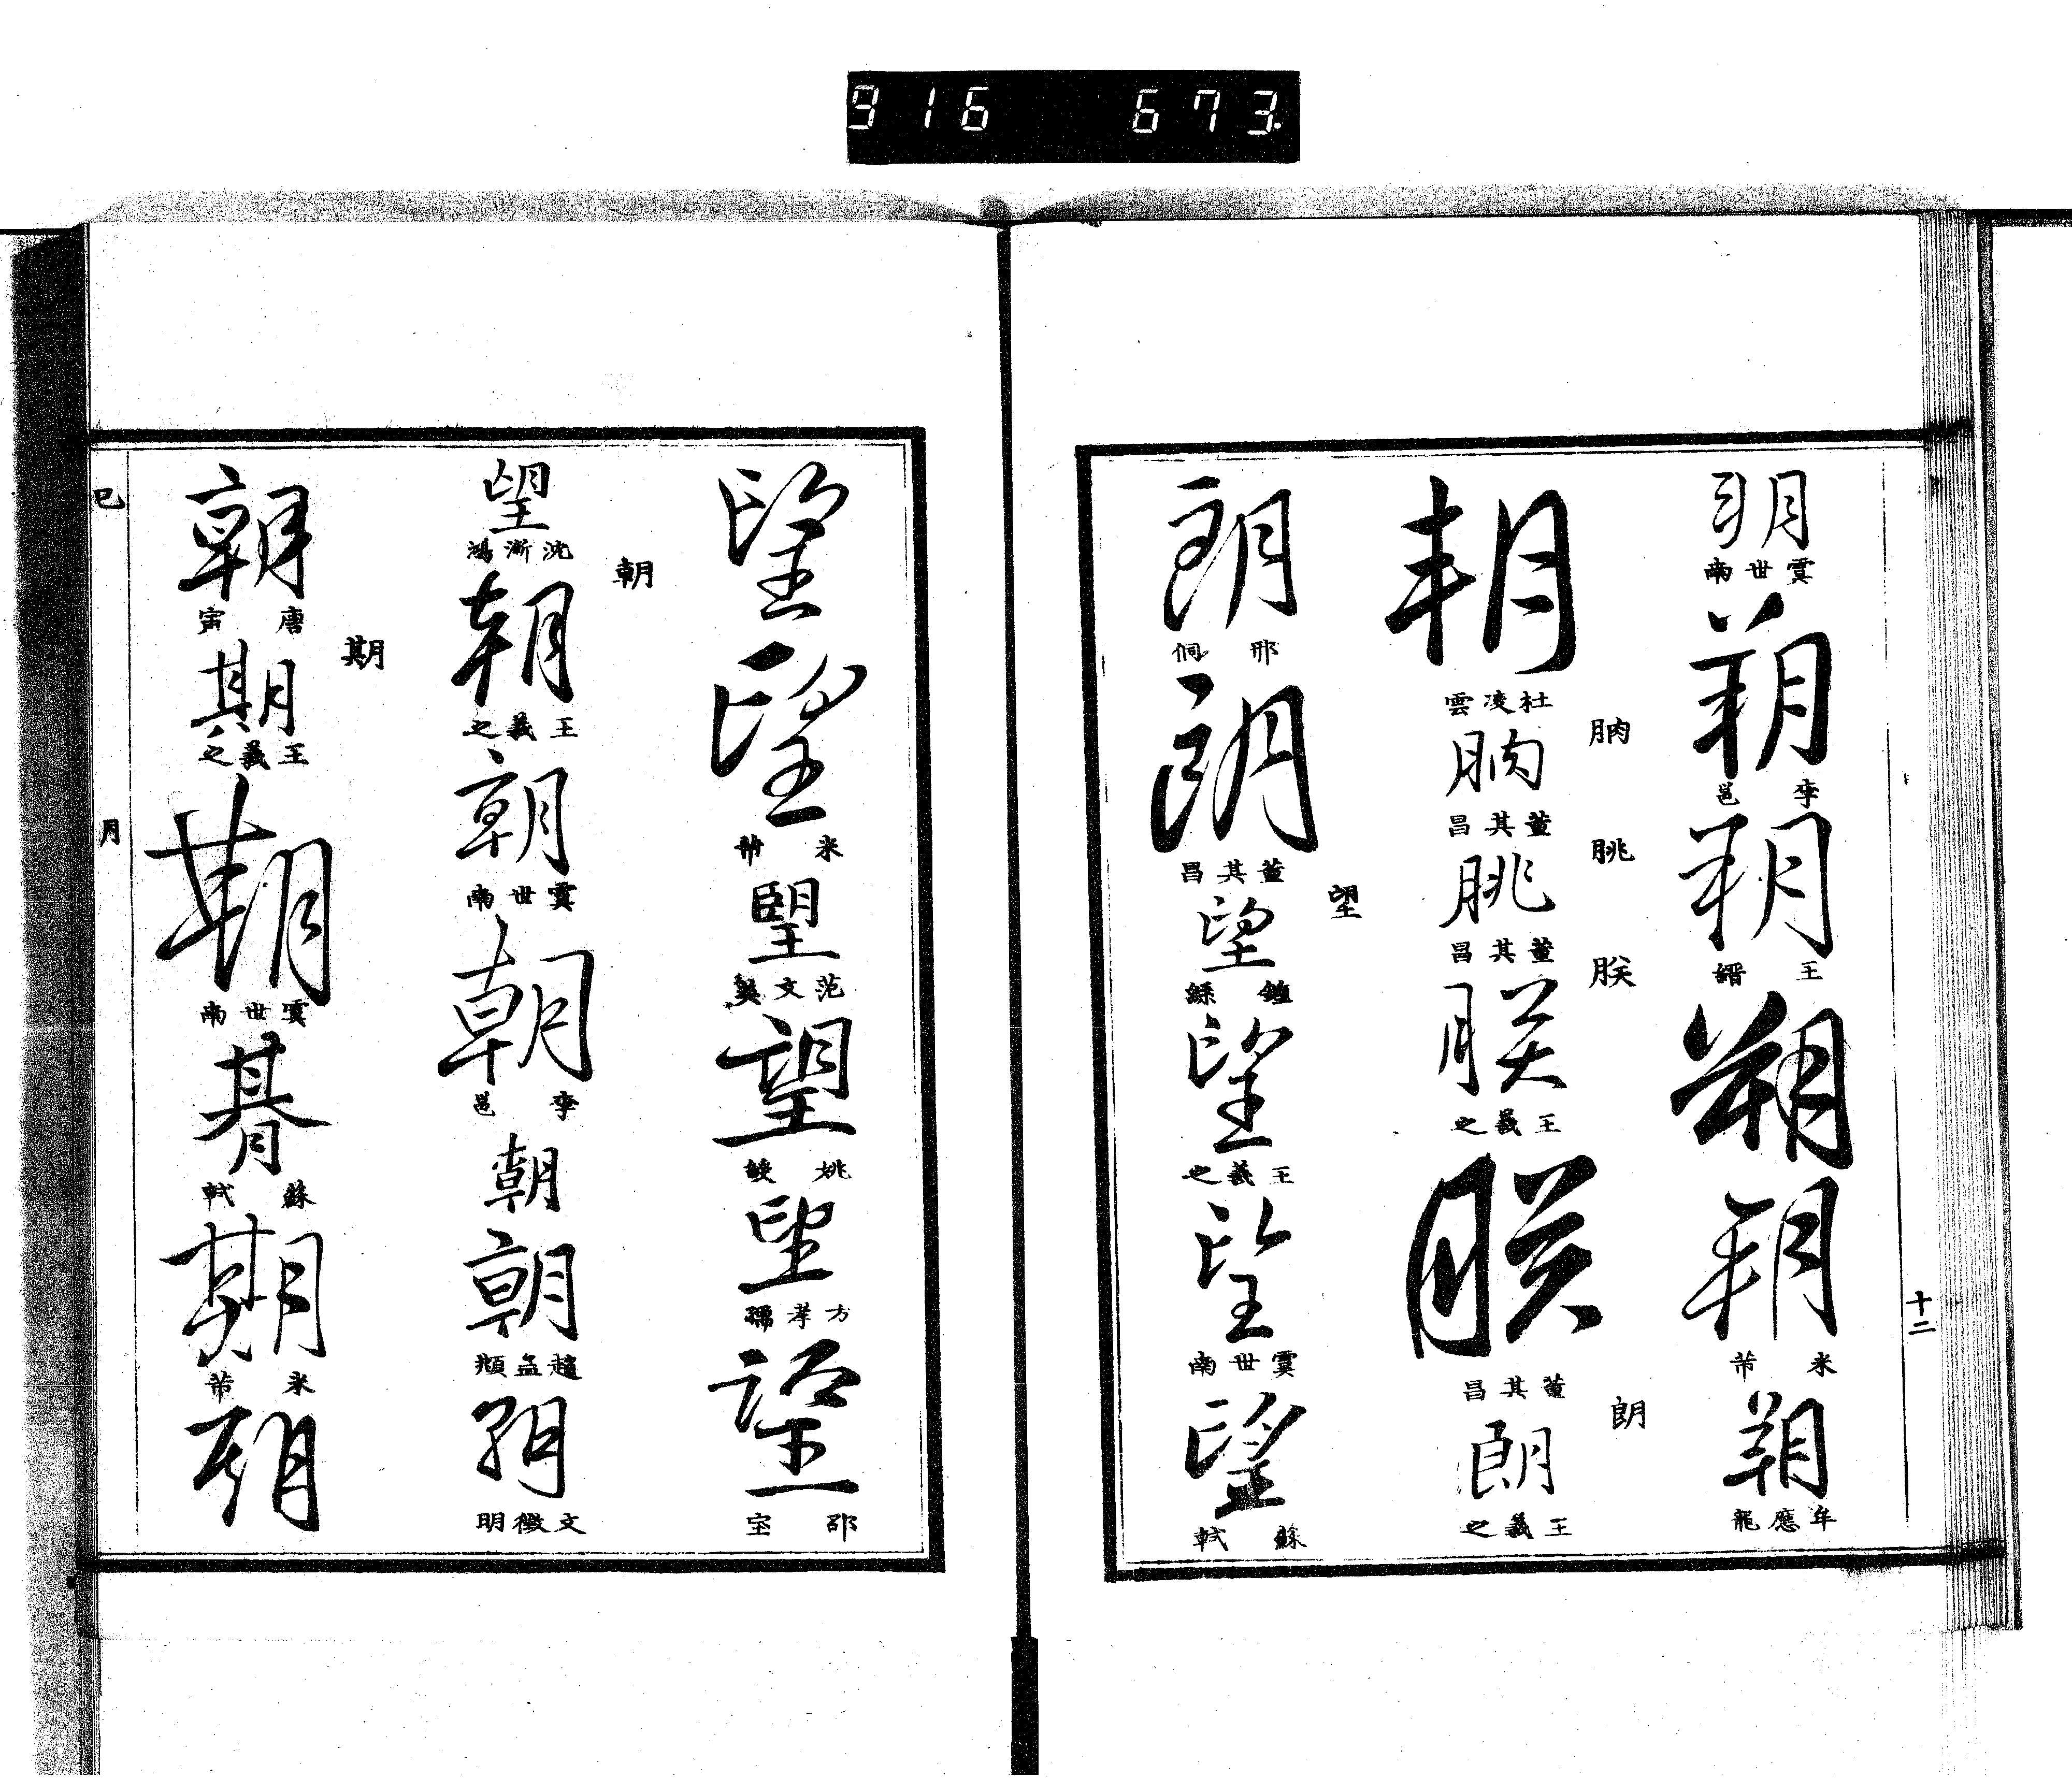 916 673
十二
朔 虞世南 朔 李邕 朔 王縉 朔 朔 米芾 朔 牟應龍
朒 朓 朕 朗
朔 杜凌雲 朒 董其昌 朓 董其昌 朕 王羲之 朕 董其昌 朗 王羲之
望
朗 邢侗 朗 董其昌 望 鍾繇 望 王羲之 望 虞世南 望 蘇軾
望 望 米芾 望 范文 望 姚綬 望 方孝孺 望 邵宝
朝
望 沈漸鴻 朝 王羲之 朝 虞世南 朝 李邕 朝 朝 趙孟頫 朝 文徵明
期
朝 唐寅 期 王羲之 期 虞世南 朞 蘇軾 期 米芾 期
巳 月